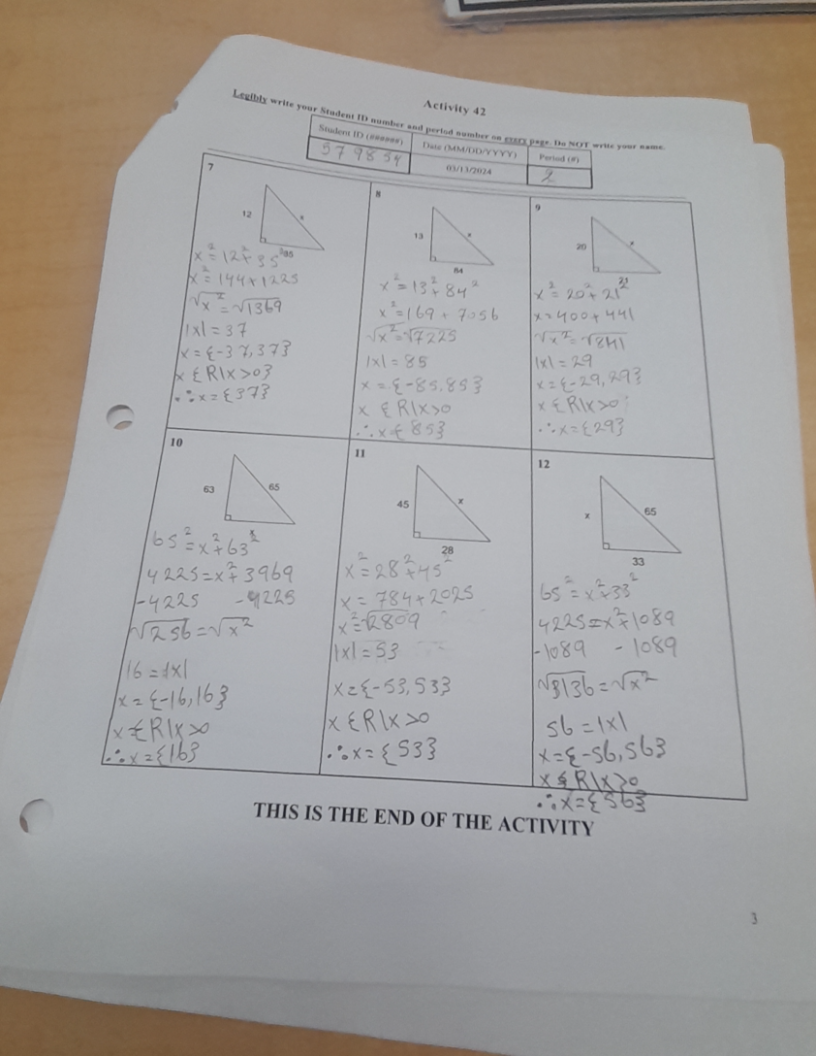 Activity 42
Legibly write your Student ID number and period number on every page. Do NOT write your name.
Student ID (######) Date (MM/DD/YYYY) Period (#)
579854 03/13/2024 2
7
12
x
35
x²=12²+35²
x²=144+1225
√x²=√1369
|x|=37
x={-37,37}
x {R|x>0}
∴x={37}
8
13
x
84
x²=13²+84²
x²=169+7056
√x²=√7225
|x|=85
x={-85.85}
x {R|x>0
∴x{85}
9
20
x
21
x²=20²+21²
x=400+441
√x²=√841
|x|=29
x={-29,29}
x {R|x>0
∴x={29}
10
63
65
x
65²=x²+63²
4225=x²+3969
-4225 -4225
√256=√x²
16=|x|
x={-16,16}
x {R|x>0
∴x={16}
11
45
x
28
x²=28²+45²
x=784+2025
x²=√2809
|x|=53
x={-53,53}
x {R|x>0
∴x={53}
12
x
65
33
65²=x²+33²
4225=x²+1089
-1089 -1089
√3136=√x²
56=|x|
x={-56,56}
x {R|x>0
∴x={56}
THIS IS THE END OF THE ACTIVITY
3